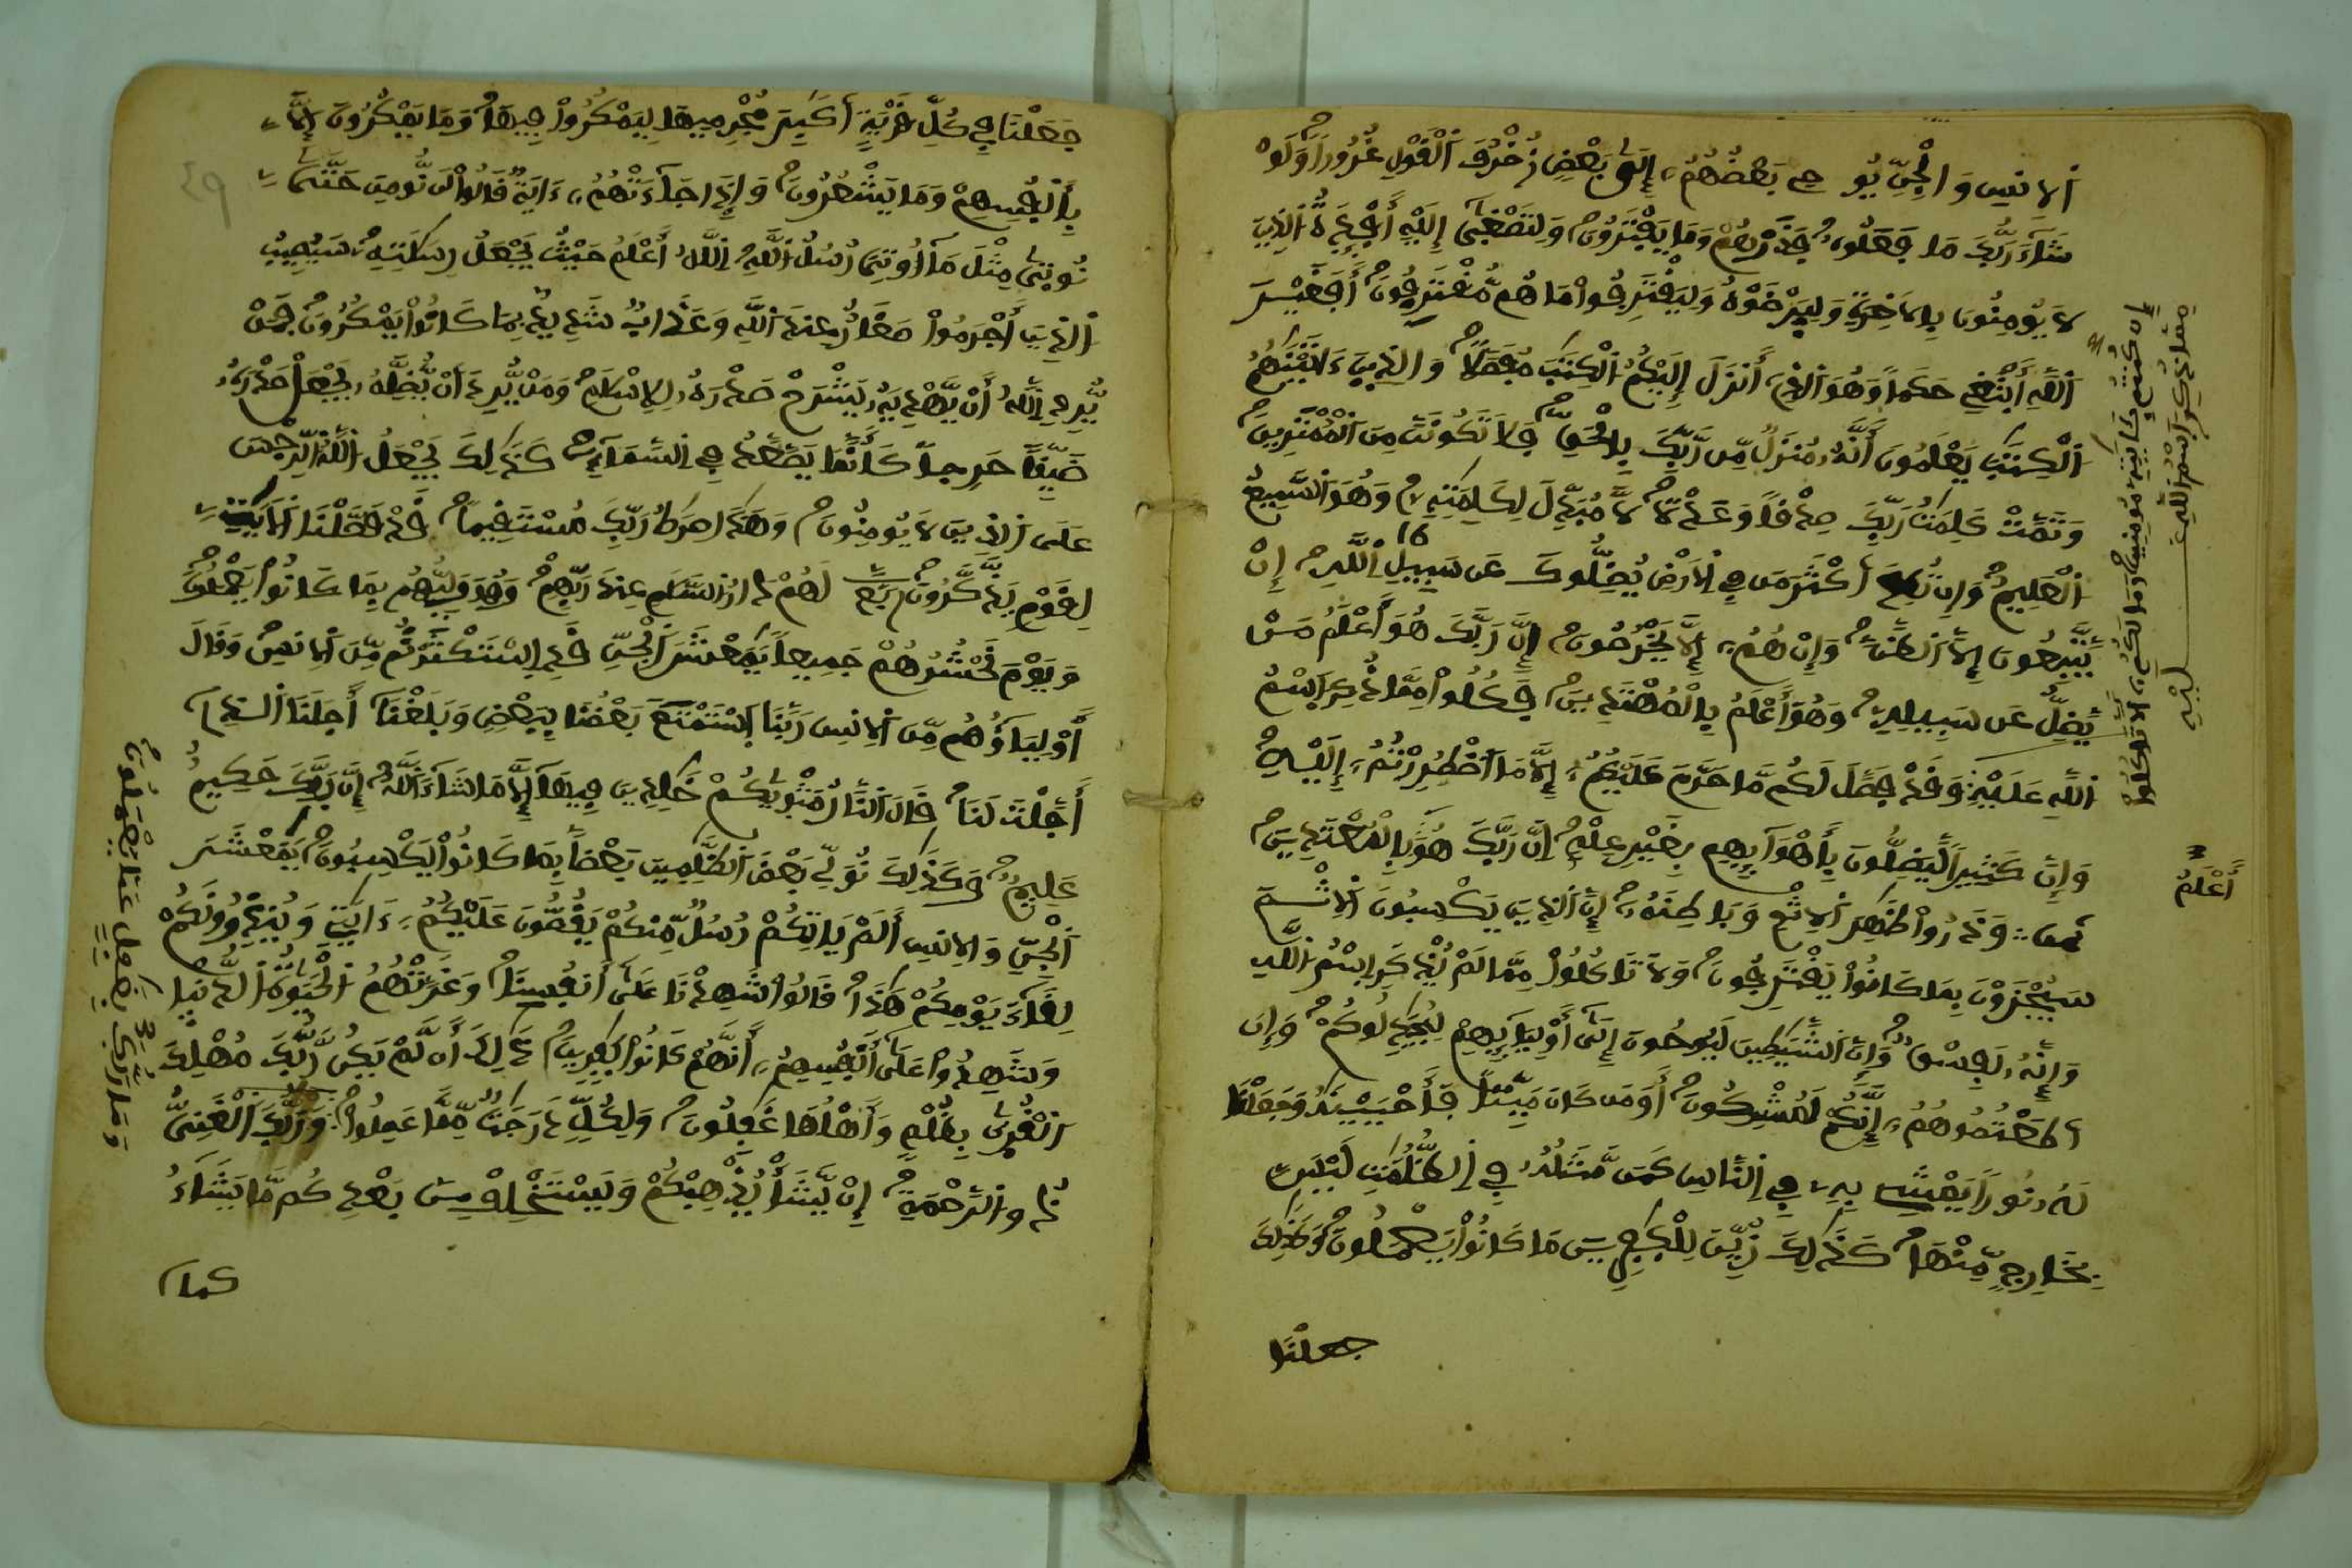 الانس والجن يوحے بعضهم إلى بعض زخرف القول غرورا ولو
شاء ربك ما فعلوه فذرهم وما يفترون ولتصغى إليه أفـٕدة الذين
لا يومنون بالاخرة وليرضوه وليقترفوا ما هم مقترفون أفغير
الله أبتغي حكما وهو الذي أنزل إليكم الكتب مفصلا والذين ءاتينهم
الكتب يعلمون أنه منزل من ربك بالحق فلا تكونن من الممترين
وتمت كلمت ربك صدقا وعدلا لا مبدل لكلمته وهو السميع
العليم وإن تطع أكثر من في الارض يضلوك عن سبيل الله إن
يتبعون إلا الظن وإن هم إلا يخرصون إن ربك هو أعلم من
يضل عن سبيله وهو أعلم بالمهتدين فكلوا مما ذكر اسم
الله عليه وقد فصل لكم ما حرم عليكم إلا ما اضطررتم إليه
وإن كثيرا ليضلون بأهوايهم بغير علم إن ربك هو بالمعتدين
وذروا ظهر الاثم وباطنه إن الذين يكسبون الاثم
سيجزون بما كانوا يقترفون ولا تاكلوا مما لم يذكر اسم الله
وإنه لفسق وإن الشيطين ليوحون إلى أوليايهم ليجدلوكم وإن
اطعتموهم إنكم لمشركون أومن كان ميتا فأحيينه وجعلنا
له نورا يمشے به في الناس كمن مثله في الظلمت ليس
بخارج منها كذلك زين للكفرين ما كانوا يعملون وكذلك
جعلنا
إن كنتم بـٔايته مومنين وما لكم ألا تاكلوا
مما ذكر اسم الله
عليه
أعلم
جعلنا في كل قرية أكبر مجرميها ليمكروا فيها وما يمكرون إلا
بأنفسهم وما يشعرون وإذا جاءتهم ءاية قالوا لن نومن حتى
نوتى مثل ما أوتي رسل الله الله أعلم حيث يجعل رسلته سيصيب
الذين أجرموا صغار عند الله وعذاب شديد بما كانوا يمكرون فمن
يرد الله أن يهديه يشرح صدره للاسلم ومن يرد أن يضله يجعل صدره
ضيقا حرجا كأنما يصعد في السماء كذلك يجعل الله الرجس
على الذين لا يومنون وهذا صرط ربك مستقيما قد فصلنا الايت
لقوم يذكرون لهم دار السلم عند ربهم وهو وليهم بما كانوا يعملون
ويوم نحشرهم جميعا يمعشر الجن قد استكثرتم من الانس وقال
أولياؤهم من الانس ربنا استمتع بعضنا ببعض وبلغنا أجلنا الذي
أجلت لنا قال النار مثويكم خلدين فيها إلا ما شاء الله إن ربك حكيم
عليم وكذلك نولي بعض الظلمين بعضا بما كانوا يكسبون يمعشر
الجن والانس ألم ياتكم رسل منكم يقصون عليكم ءايتي وينذرونكم
لقاء يومكم هذا قالوا شهدنا على أنفسنا وغرتهم الحيوة الدنيا
وشهدوا على أنفسهم أنهم كانوا كفرين ذلك أن لم يكن ربك مهلك
القرى بظلم وأهلها غفلون ولكل درجت مما عملوا وربك الغني
ذو الرحمة إن يشأ يذهبكم ويستخلف من بعدكم ما يشاء
كما
وما ربك بغفل عما يعملون